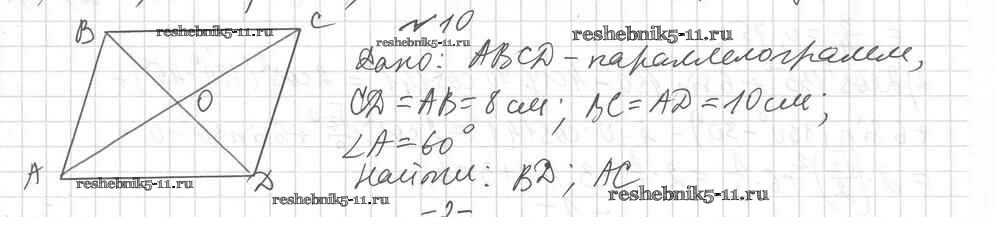 № 10
reshebnik5-11.ru
reshebnik5-11.ru
reshebnik5-11.ru
B
C
Дано: ABCD – параллелограмм,
O
CD = AB = 8 см; BC = AD = 10 см;
∠A = 60°
A
D
Найти: BD; AC
reshebnik5-11.ru
reshebnik5-11.ru
reshebnik5-11.ru
–2–